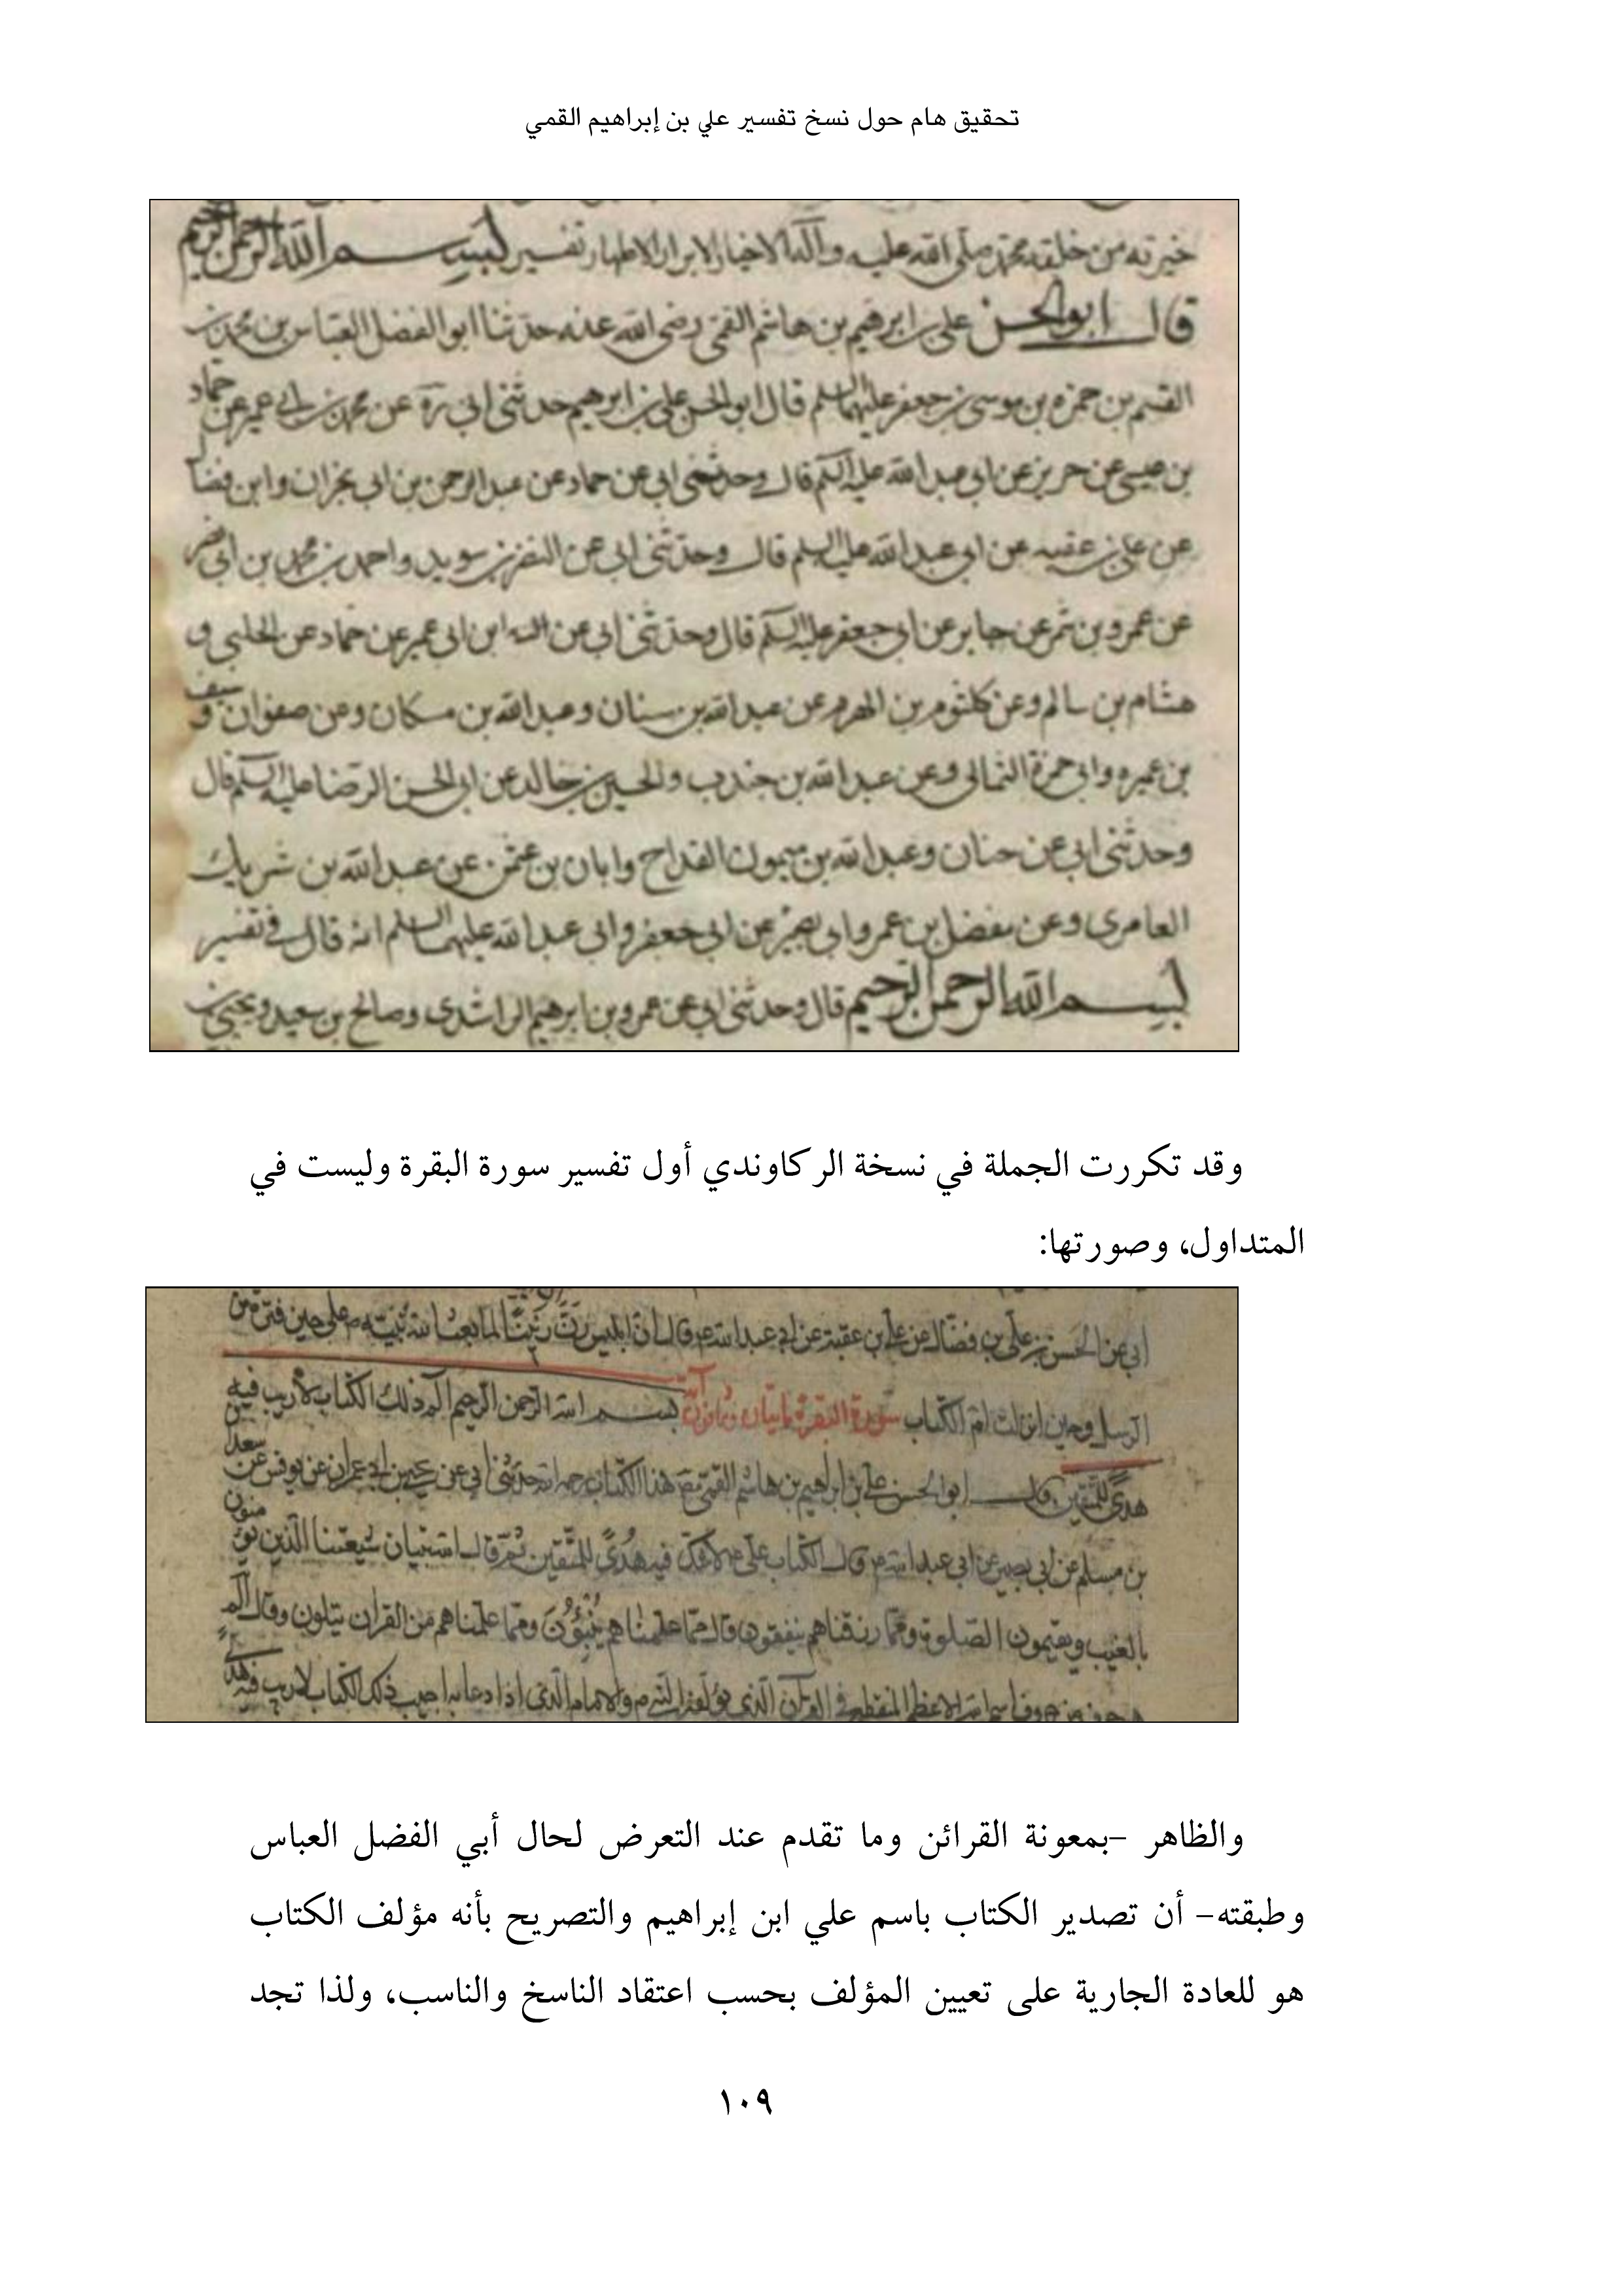 تحقيق هام حول نسخ تفسير علي بن إبراهيم القمي
خيرته من خلقه محمد صلى الله عليه وآله الاخيار الابرار الاطهار تفسير بسم الله الرحمن الرحيم
قال ابو الحسن على بن ابرهيم بن هاشم القمى رضى الله عنه حدثنا ابو الفضل العباس بن محمد بن
القسم بن حمزه بن موسى بن جعفر عليهما السلم قال ابو الحسن على بن ابرهيم حدثنى ابى ره عن محمد بن ابي عمير عن حماد
بن عيسى عن حريز عن ابي عبد الله عليه السلم قال وحدثنى ابي عن حماد وعن عبد الرحمن بن ابي نجران وابن فضا
عن على بن عقبه عن ابي عبد الله عليه السلم قال وحدثنى ابي عن النضر بن سويد واحمد بن محمد بن ابي نصر
عن عمرو بن شمر عن جابر عن ابي جعفر عليه السلم قال وحدثنى ابي عن ابن ابي عمير عن حماد عن الحلبي و
هشام بن سالم وعن كلثوم بن الهرم عن عبد الله بن سنان وعبد الله بن مسكان وعن صفوان و سيف
بن عميره وابي حمزة الثمالى وعن عبد الله بن جندب والحسين بن خالد عن ابي الحسن الرضا عليه السلم قال
وحدثنى ابي عن حنان وعبد الله بن ميمون القداح وابان بن عثمن عن عبد الله بن شريك
العامرى وعن مفضل بن عمر وابي بصير عن ابي جعفر وابي عبد الله عليهما السلم انه قال في تفسير
بسم الله الرحمن الرحيم قال وحدثنى ابي عن عمرو بن ابرهيم الراشدى وصالح بن سعيد ويحيى بن
وقد تكررت الجملة في نسخة الركاوندي أول تفسير سورة البقرة وليست في
المتداول، وصورتها:
ابي عن الحسن بن على بن فضال عن على بن عقبة عن ابي عبد الله ع قال ان ابليس رن رنينا لما بعث الله نبيه ص على حين فترة من
الرسل وحين انزلت ام الكتاب سورة البقرة مايتان وثمانون آية بسم الله الرحمن الرحيم الم ذلك الكتاب لا ريب فيه
هدى للمتقين قال ابو الحسن على بن ابراهيم بن هاشم القمي هذا الكتاب رحمه الله حدثنى ابي عن يحيى بن ابي عمران عن يونس عن سعد
بن مسلم عن ابي بصير عن ابي عبد الله ع قال الكتاب على ع لا شك فيه هدى للمتقين ثم قال تبيان لشيعتنا الذين يؤ منون
بالغيب ويقيمون الصلوة ومما رزقناهم ينفقون قال مما علمناهم ينبؤن ومما علمناهم من القران يتلون وقال الم
اسم الله الاعظم المقطع في القرآن الذي والامام الذي اذا دعا به اجيب ذلك الكتاب لا ريب فيه هدى
والظاهر –بمعونة القرائن وما تقدم عند التعرض لحال أبي الفضل العباس
وطبقته– أن تصدير الكتاب باسم علي ابن إبراهيم والتصريح بأنه مؤلف الكتاب
هو للعادة الجارية على تعيين المؤلف بحسب اعتقاد الناسخ والناسب، ولذا تجد
١٠٩